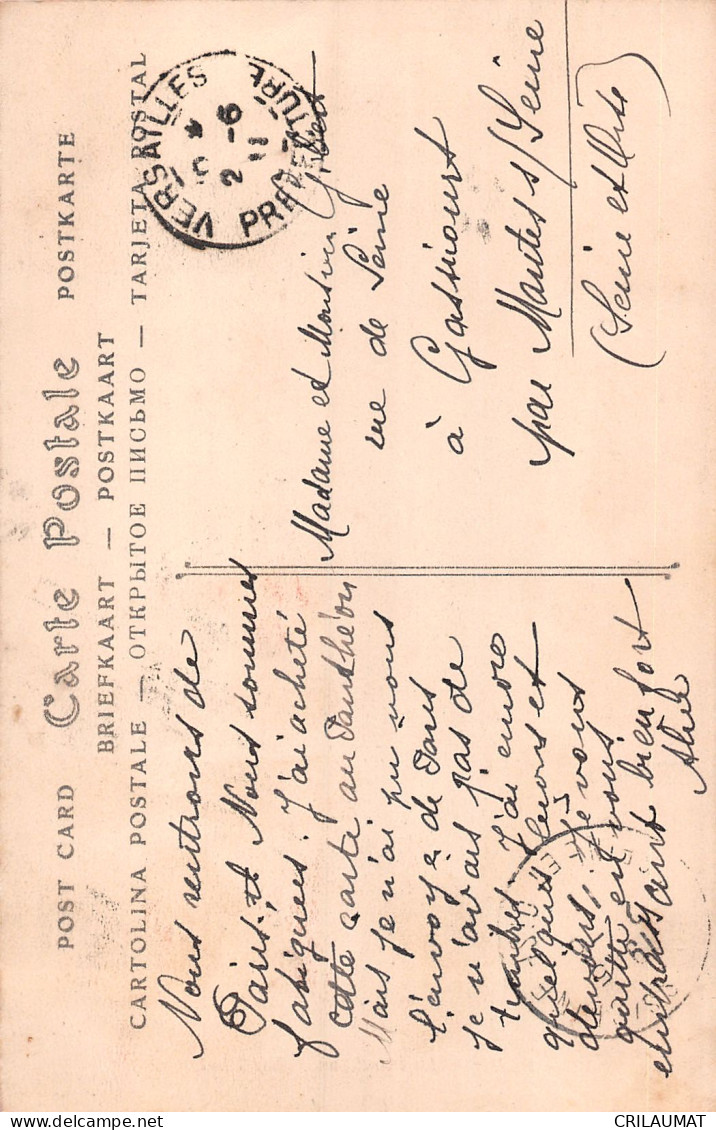 POST CARD Carte Postale POSTKARTE
BRIEFKAART — POSTKAART
CARTOLINA POSTALE — ОТКРЫТОЕ ПИСЬМО — TARJETA POSTAL
VERSAILLES
PREFECTURE
* -6
2 11
Nous rentrons de
Paris, et Nous sommes
fatiguées. J'ai acheté
cette carte au Panthéon
Mais je n'ai pu vous
l'envoyé de Paris
Je n'avais pas de
timbres. J'ai encore
quelques leçons et
devoirs. Je vous
quitte en vous
embrassant bien fort
Madame et Monsieur Gibert
rue de Seine
à Gassicourt
par Mantes s/Seine
(Seine et Oise)
CRILAUMAT